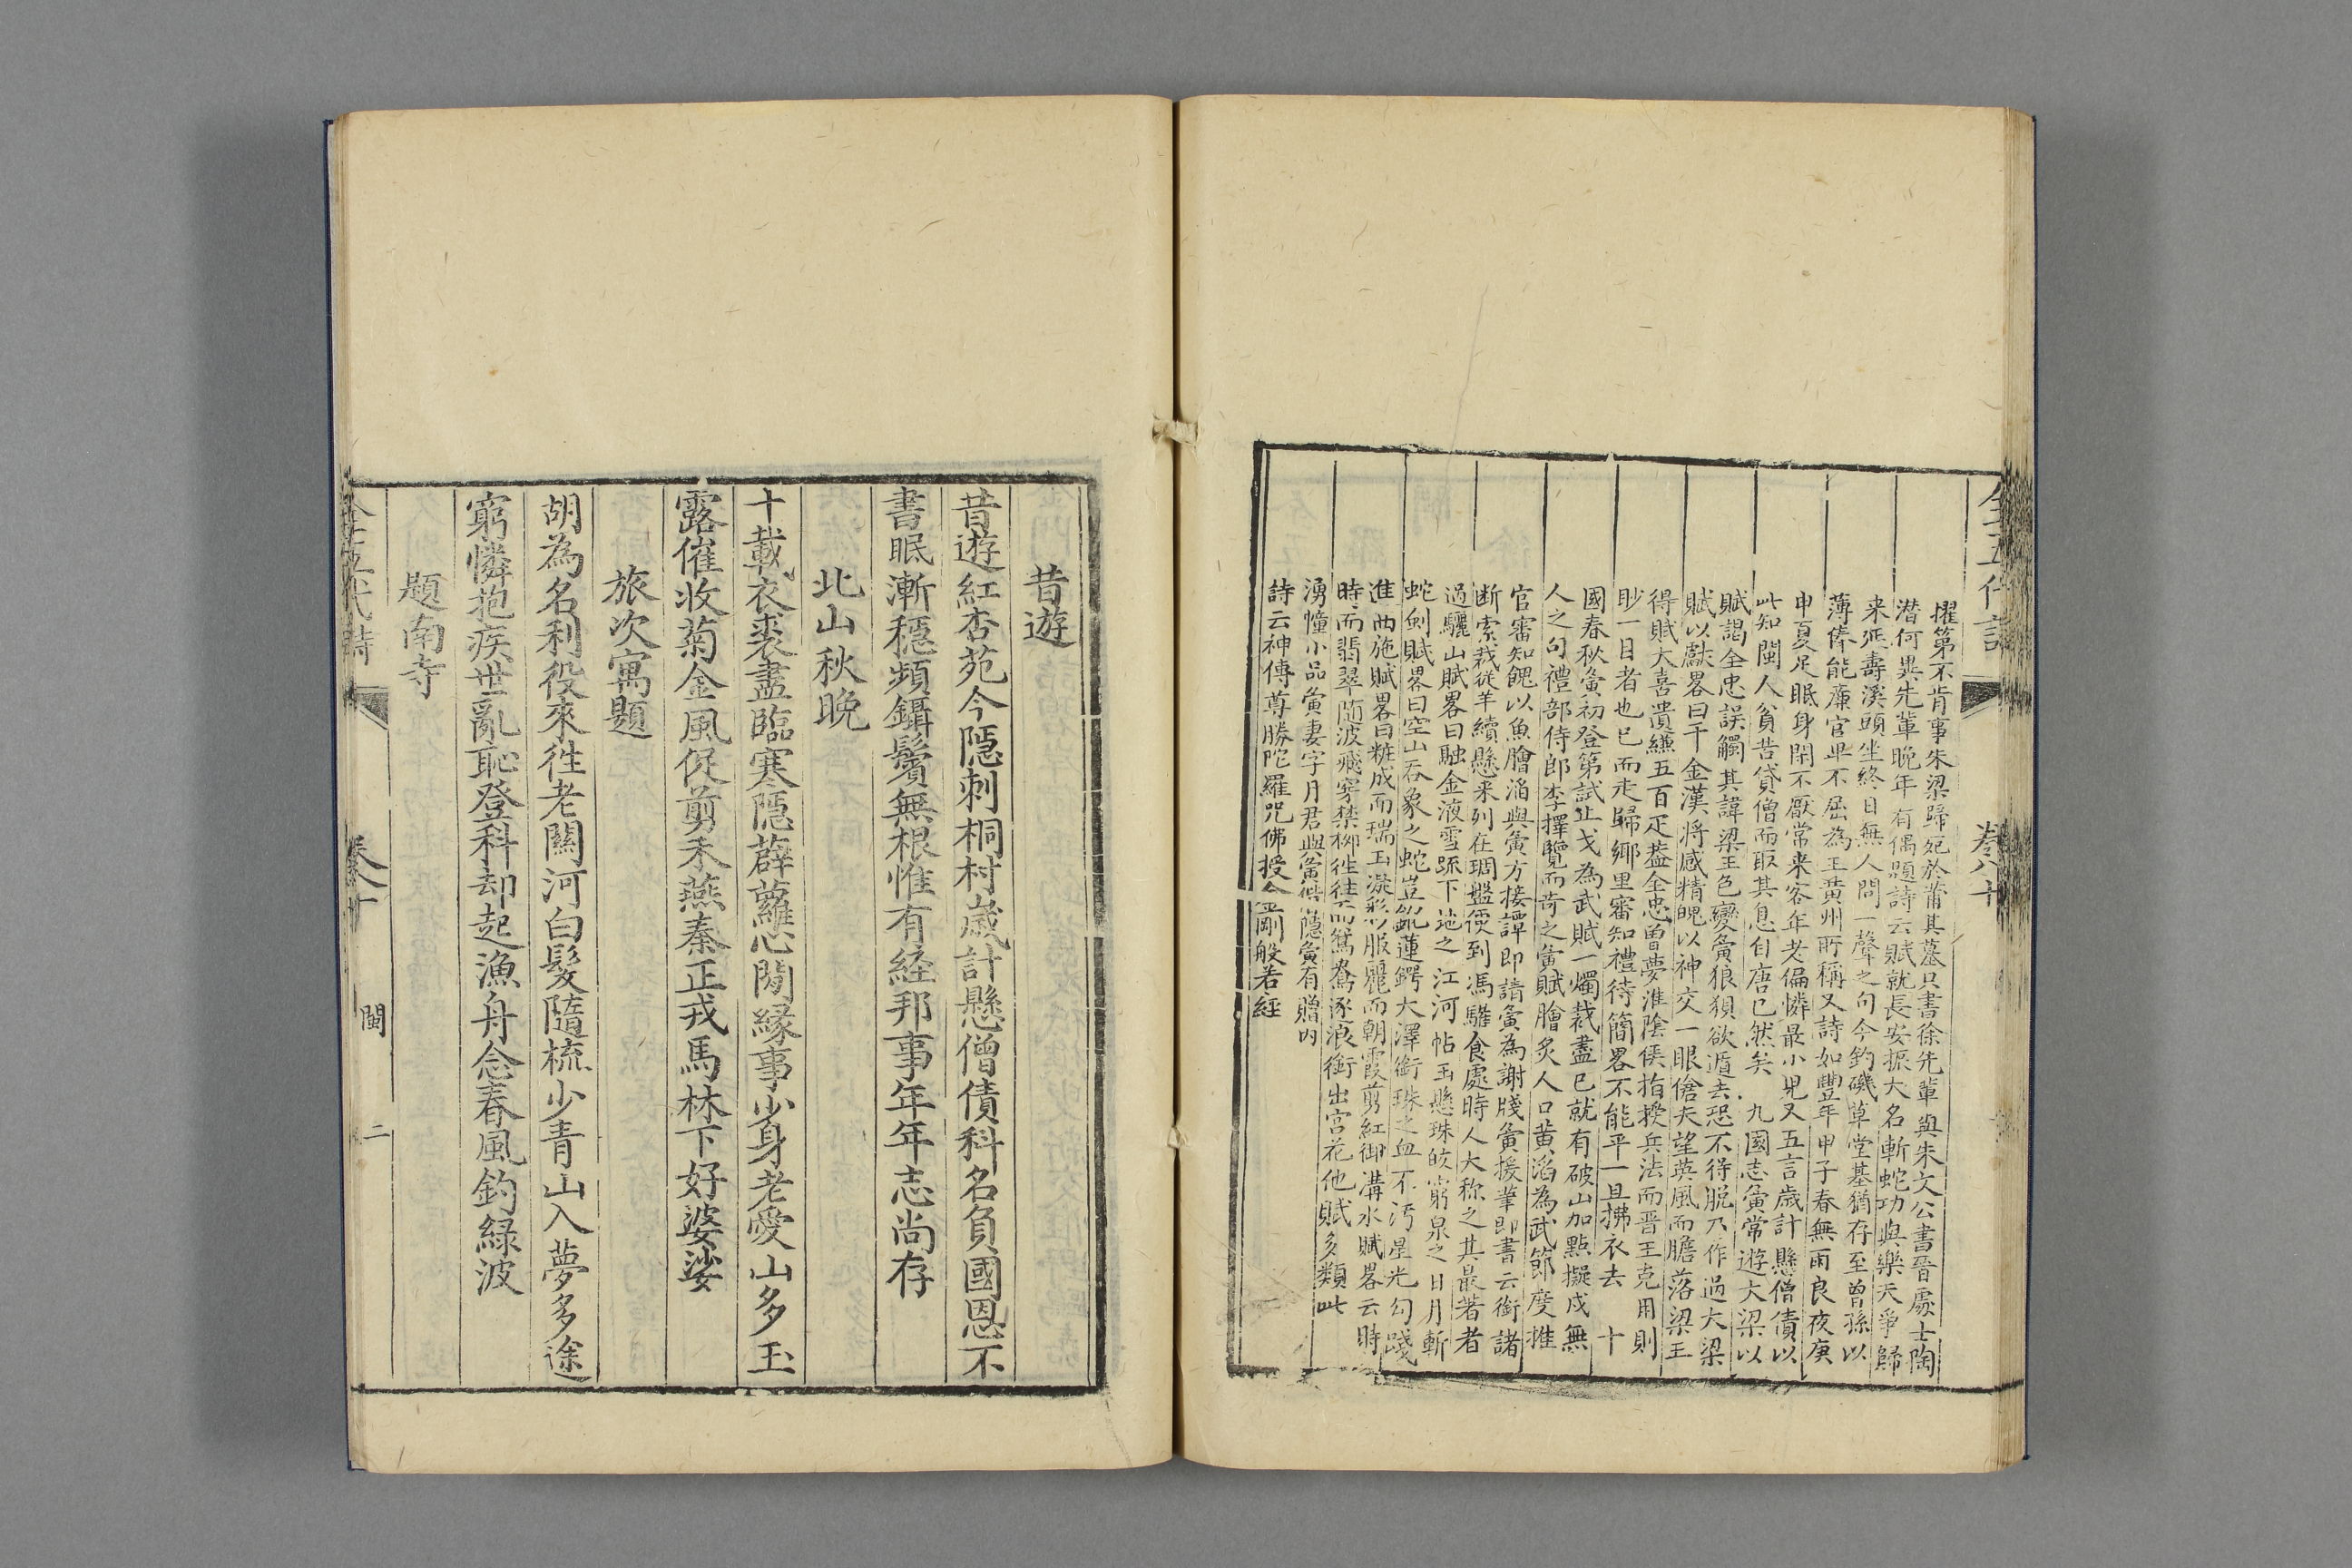 全五代詩
卷八十
擢第不肯事朱梁歸死於莆其墓只書徐先輩與朱文公書晉處士陶
潛何異先輩晚年有偶題詩云賦就長安振大名斬蛇功與樂天爭歸
来延壽溪頭坐終日無人問一聲之句今釣磯草堂基猶存至曾孫以
薄俸能廉官卑不屈為王黄州所稱又詩如豐年甲子春無雨良夜庚
申夏足眠身閑不厭常来客年老偏憐最小兒又五言歲計懸僧債以
此知閩人貧苦貸僧而取其息自唐已然矣 九國志寅常遊大梁以
賦謁全忠誤觸其諱梁王色變寅狼狽欲遁去恐不得脱乃作過大梁
賦以獻畧曰千金漢將感精魄以神交一眼傖夫望英風而膽落梁王
得賦大喜遺縑五百疋葢全忠曽夢淮陰侯指授兵法而晋王克用則
眇一目者也已而走歸鄉里審知禮待簡畧不能平一旦拂衣去 十
國春秋寅初登第試止戈為武賦一燭裁盡已就有破山加點擬戍無
人之句禮部侍郎李擇覽而奇之寅賦膾炙人口黄滔為武節度推
官審知餽以魚膾滔與寅方接譚即請寅為謝牋寅援筆即書云銜諸
断索裁從羊續懸来列在琱盤便到馮驩食處時人大称之其最著者
過驪山賦畧曰融金液雪跡下地之江河帖玉懸珠皎窮泉之日月斬
蛇劍賦畧曰空山吞象之蛇豈銳蓮鍔大澤銜珠之血不汚星光勾踐
進西施賦畧曰粧成而瑞玉凝彩服麗而朝霞剪紅御溝水賦畧云時
時而翡翠隨波飛穿禁柳往往而鴛鴦逐浪銜出宫花他賦多類此
湧幢小品寅妻字月君與寅偕隱寅有贈内
詩云神傳尊勝陀羅咒佛授金剛般若經
昔遊
昔遊紅杏苑今隱刺桐村歲計懸僧債科名負國恩不
書眠漸穩頻鑷鬢無根惟有経邦事年年志尚存
北山秋晚
十載衣裘盡臨寒隱薜蘿心閒緣事少身老愛山多玉
露催收菊金風促剪禾燕秦正戎馬林下好婆娑
旅次寓題
胡為名利役來徃老關河白髮隨梳少青山入夢多途
窮憐抱疾世亂恥登科却起漁舟念春風釣緑波
題南寺
全五代詩
卷八十
閩
二